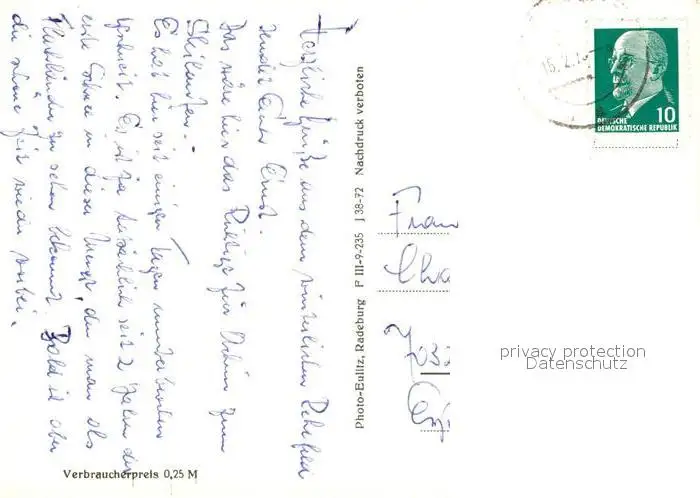 Herzliche Grüße aus dem winterlichen Rehefeld
sendet Euer Ernst.
Das wäre hier das Richtige für Achim zum
Skilaufen. -
Es hat hier seit einigen Tagen wunderbar
geschneit. Es ist ja tatsächlich seit 2 Jahren der
erste Schnee in dieser Menge, den man als
Flachländer zu sehen bekommt. Bald ist aber
die schöne Zeit wieder vorbei.
Verbraucherpreis 0,25 M
Photo-Eulitz, Radeburg P III-9-235 J 38-72 Nachdruck verboten
15.2.7
10
DEUTSCHE
DEMOKRATISCHE REPUBLIK
Frau
Cha
privacy protection
Datenschutz